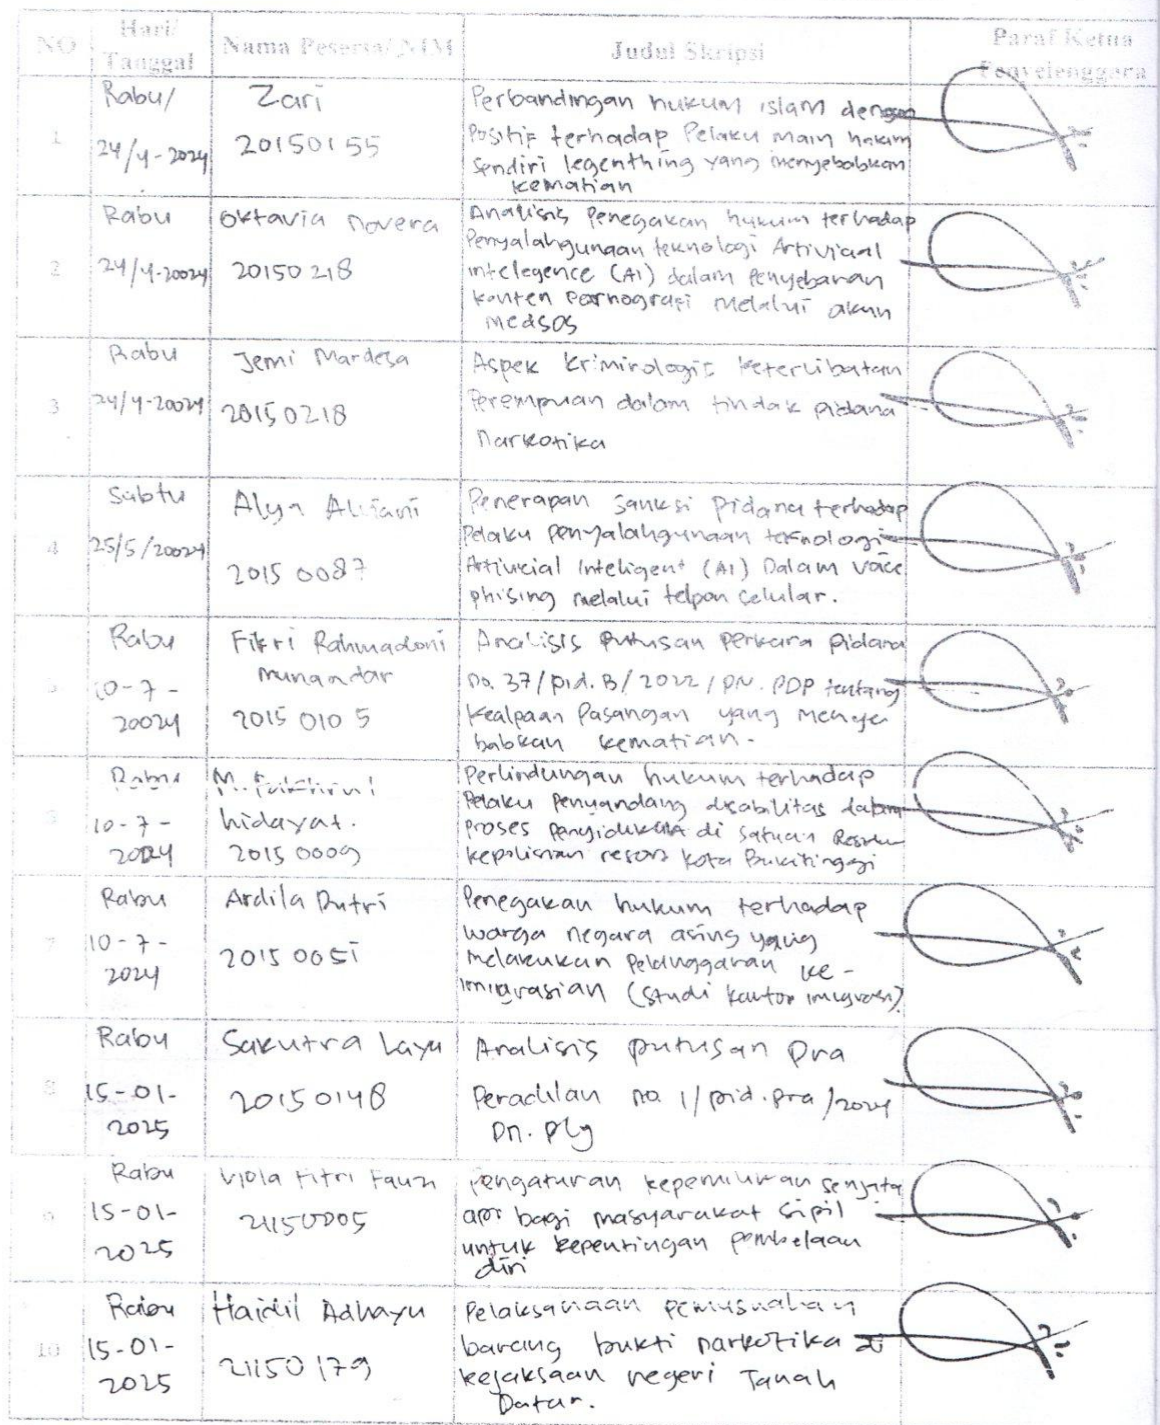 NO
Hari/
Tanggal
Nama Peserta/ NIM
Judul Skripsi
Paraf Ketua
Penyelenggara
1
Rabu/
24/4-2024
Zari
20150155
Perbandingan hukum islam dengan
Positif terhadap Pelaku main hakim
Sendiri legenthing yang menyebabkan
kematian
2
Rabu
24/4-20024
Oktavia Novera
20150218
Analisis Penegakan hukum terhadap
Penyalahgunaan teknologi Artivicial
intelegence (AI) dalam Penyebaran
konten Pornografi Melalui akun
medsos
3
Rabu
24/4-20024
Jemi Mardesa
20150218
Aspek Kriminologis Keterlibatan
Perempuan dalam tindak pidana
Narkotika
4
Sabtu
25/5/20024
Alya
2015 0087
Penerapan Sanksi Pidana terhadap
Pelaku Penyalahgunaan teknologi
Artivicial Inteligent (AI) Dalam
phising melalui telpon Selular.
Rabu
10-7-
20024
Fikri Rahmadoni
Munandar
2015 0105
Analisis Putusan Perkara Pidana
no. 37/pid.B/2022/PN.PDP tentang
Kealpaan Pasangan yang Menye
babkan kematian.
Rabu
10-7-
2024
M.
hidayat.
2015 0009
Perlindungan hukum terhadap
Pelaku Penyandang disabilitas dalam
Proses Penyidikan di Satuan
kepolisian resors kota Bukitinggi
7
Rabu
10-7-
2024
Ardila Putri
2015 0051
Penegakan hukum terhadap
warga negara asing yang
melakukan Pelanggaran ke-
imigrasian (studi kantor imigrasi)
8
Rabu
15-01-
2025
Sakutra Layu
20150148
Analisis putusan Pra
Peradilan no 1/pid.pra/2024
Pn. Plg
9
Rabu
15-01-
2025
Viola Fitri Fauzi
21150005
Pengaturan kepemilikan senjata
api bagi masyarakat Sipil
untuk kepentingan pembelaan
diri
10
Rabu
15-01-
2025
Adhayu
21150179
Pelaksanaan pemusnahan
barang bukti narkotika di
kejaksaan negeri Tanah
Datar.